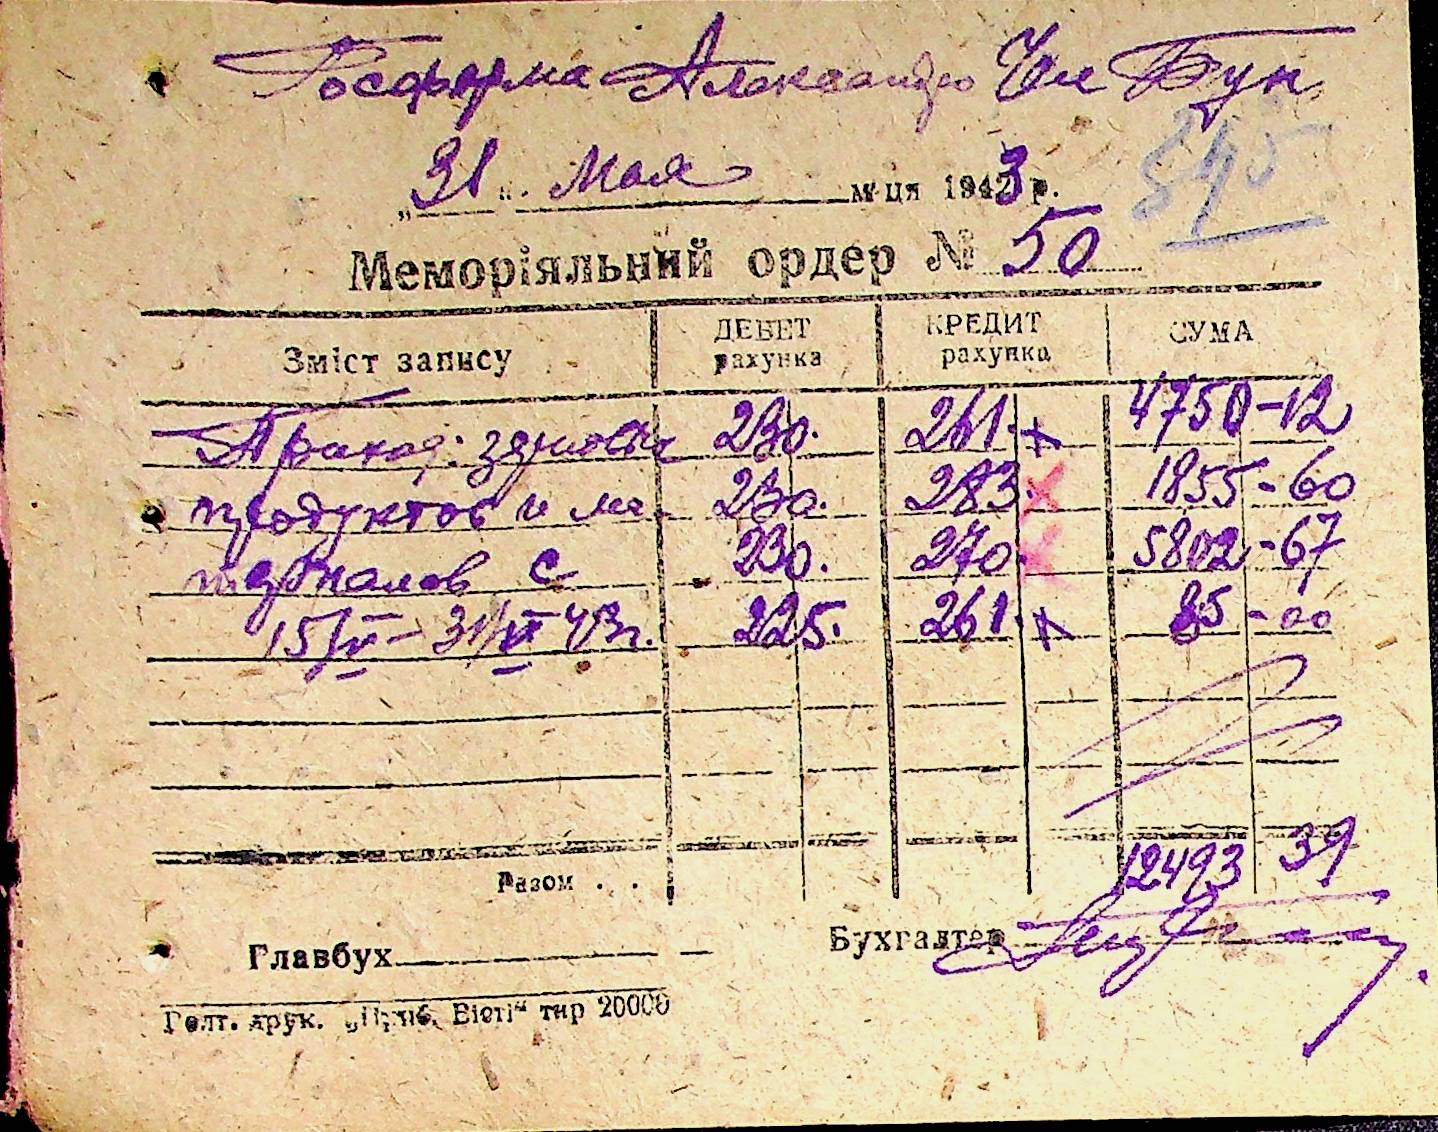 Госферма Александро
545
"31" Мая м-ця 1943 р.
Меморіяльний ордер № 50
Зміст запису ДЕБЕТ рахунка КРЕДИТ рахунка СУМА
230. 261. 4750-12
продуктов и ма- 230. 283. x 1855-60
териалов с 230. 270. x 5802-67
15/V - 31/V 43г. 225. 261. 85-00
Разом . . 12493 39
Главбух Бухгалтер
Голт. друк. „Приб. Вісті“ тир 20000